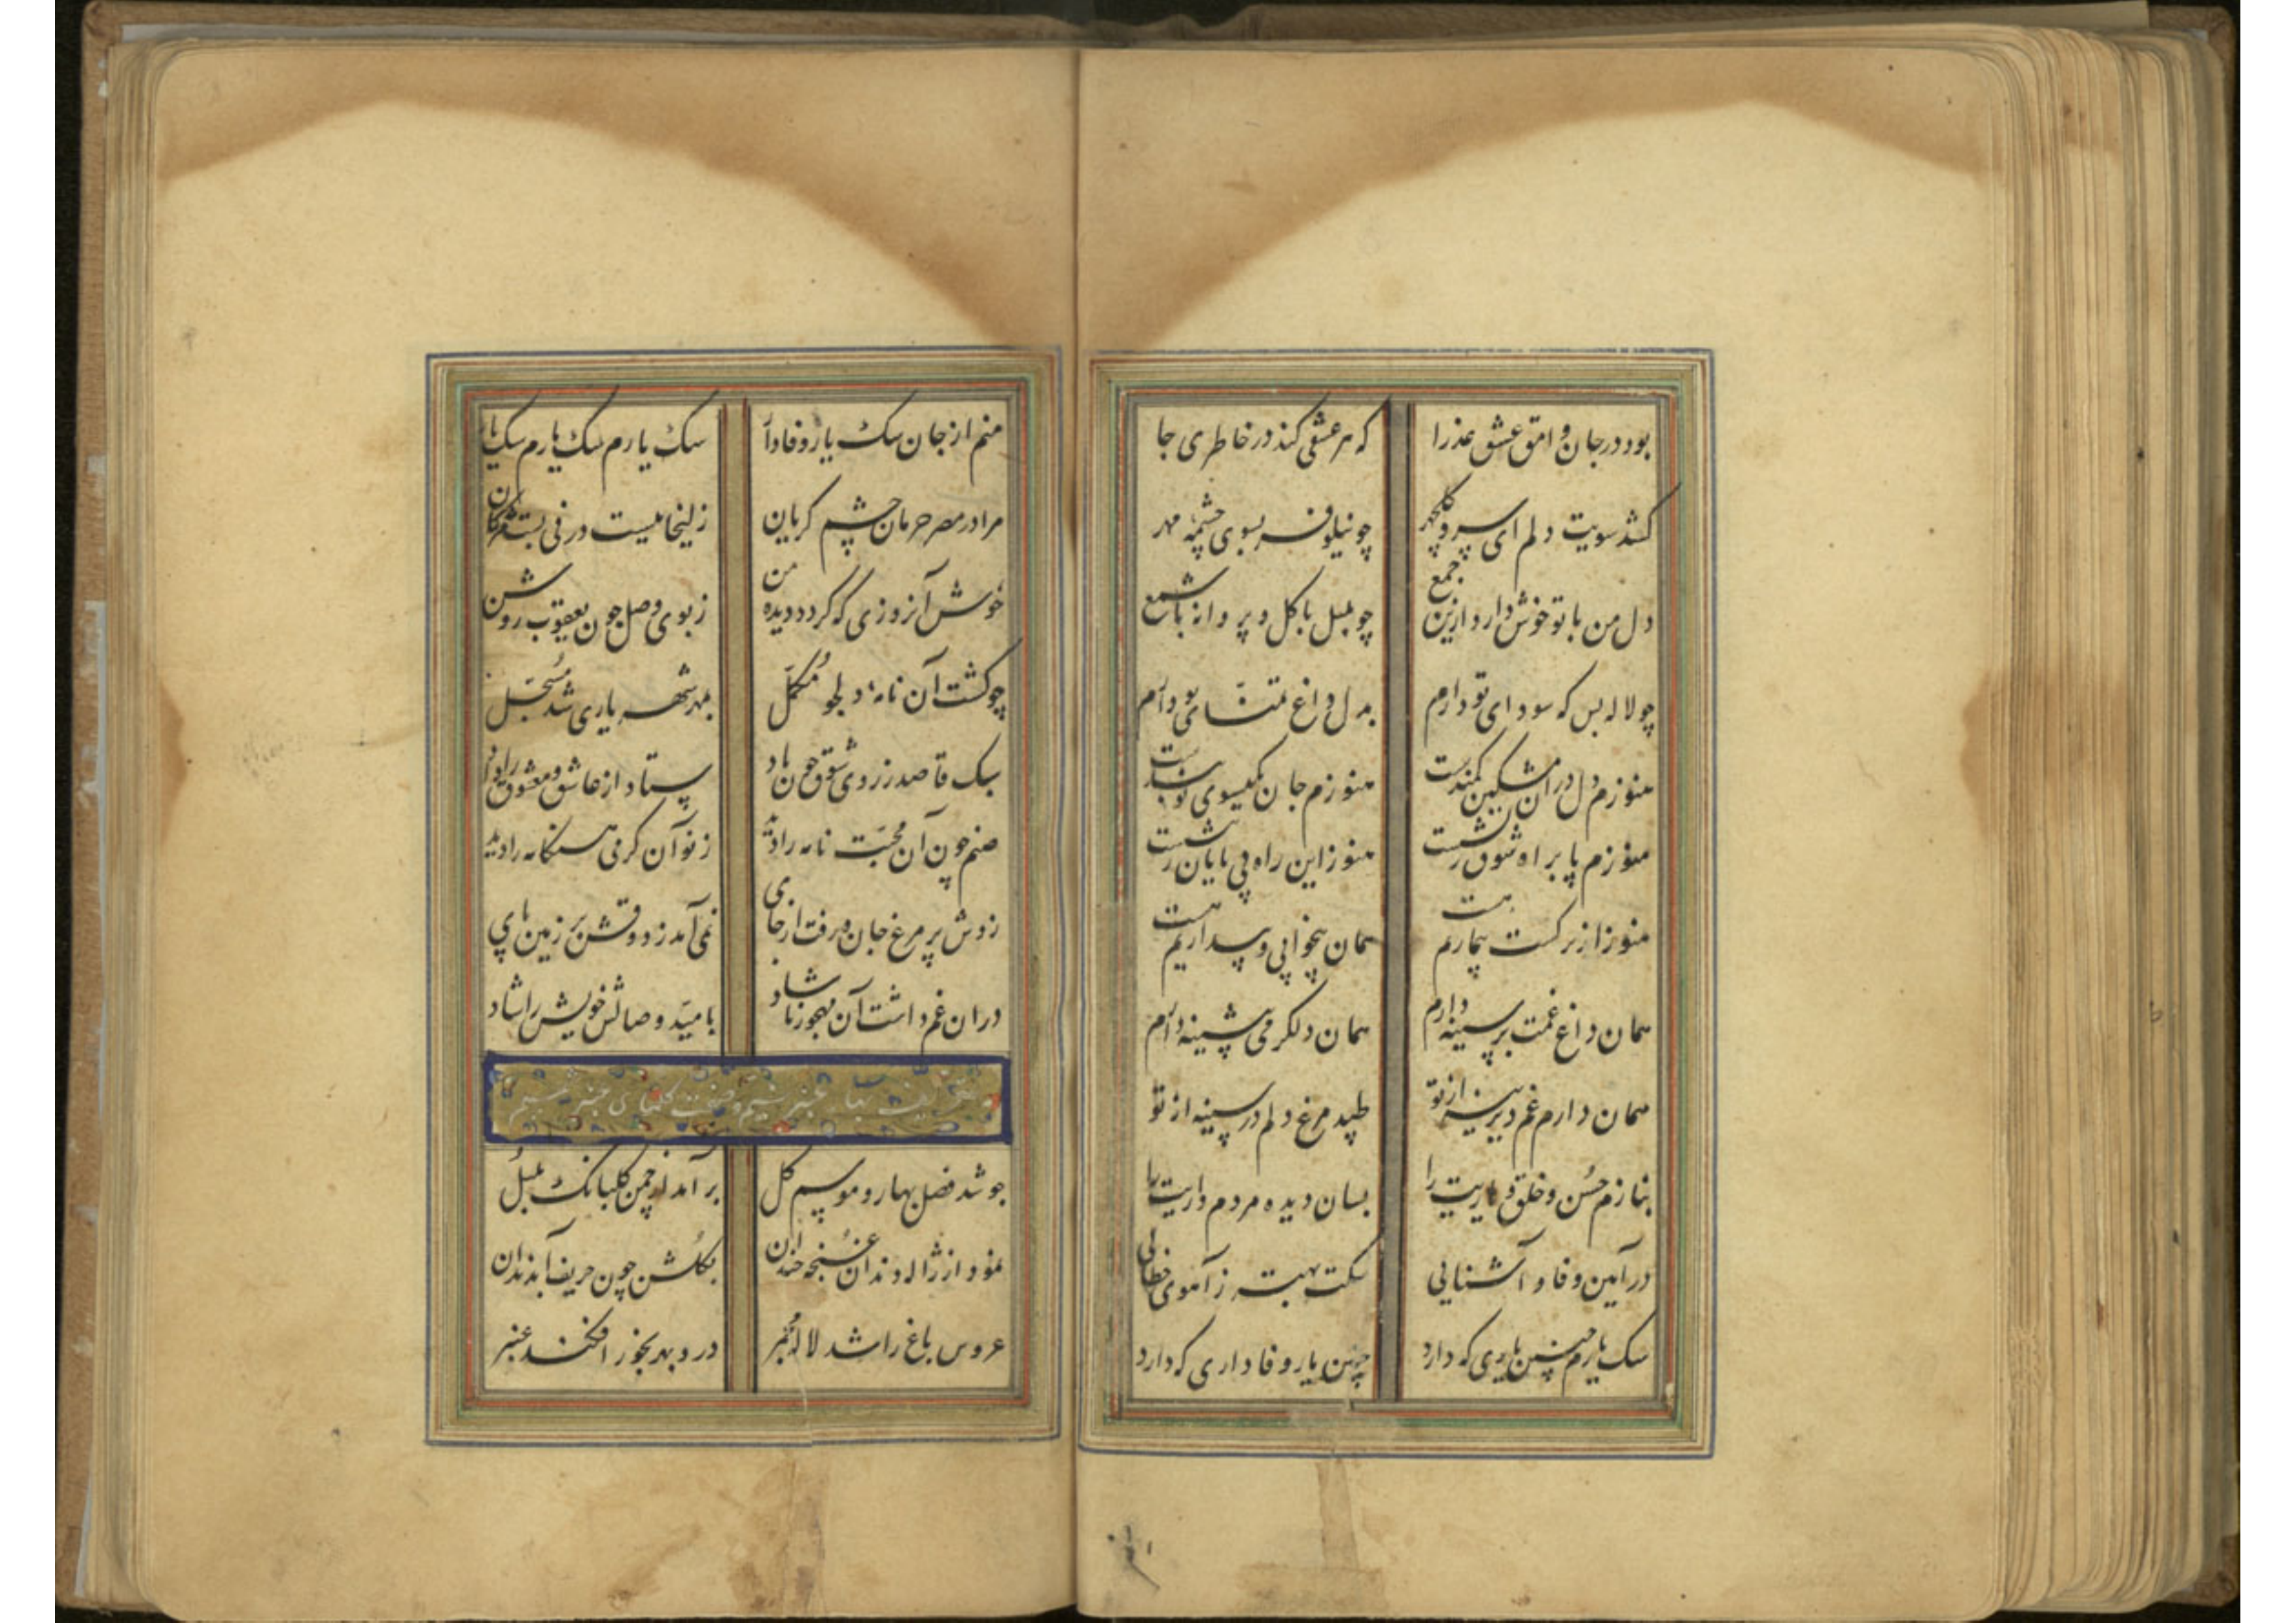 بود در جان وامق عشق عذرا که هر عشقی کند در خاطری جا
کشد سویت دلم ای سرو گلچهر چو نیلوفر بسوی چشمه مهر
دل من با تو خوش دارد ازین جمع چو بلبل با کل و پروانه با شمع
چو لاله بس که سودای تو دارم بدل داغ تمنای تو دارم
هنوزم دل در ان مشکین کمندست هنوزم جان بکیسوی تو بندست
هنوزم پا براه شوق هست هنوز این راه بی پایان هست
هنوز از نرکست بیمارم هست همان بیخوابی و بیداریم هست
همان داغ غمت بر سینه دارم همان دلکرمی پشینه دارم
همان دارم غم دیرینه از تو طپد مرغ دلم در سینه از تو
بنازم حسن و خلق و یاریت را بسان دیده مردم داریت را
در آیین وفا و آشنایی سکت بهتر ز آهوی خطایی
سک یارم چنین یاری که دارد چنین یار وفاداری که دارد
منم از جان سک یار وفادار سک یارم سک یارم سک یار
مرا در مصر حرمان چشم کریان زلیخاییست در فی بست مژکان
خوش آنروزی که کردد دیده من ز بوی وصل چون یعقوب روشن
چو کشت آن نامه دلجو مکمل بمهر شهریاری شد مسجل
سبک قاصد ز روی شوق چون باد ستاد از عاشق و معشوق را داد
صنم چون آن محبت نامه را دید ز نو آن کرمی هنکامه را دید
زدش پر مرغ جان و رفت از جای نمی آمد ز ذوقش بر زمین پای
در ان غم داشت آن مهجور ناشاد بامید وصالش خویش را شاد
تعریف بهار عنبر نسیم و صفت کلهای عنبر شمیم
چو شد فصل بهار و موسم کل بر آمد از چمن کلبانک بلبل
نمود از ژاله دندان غنچه خندان بکلشن چون حریف آبدندان
عروس باغ را شد لاله مجمر درو بهر بخور افکند عنبر